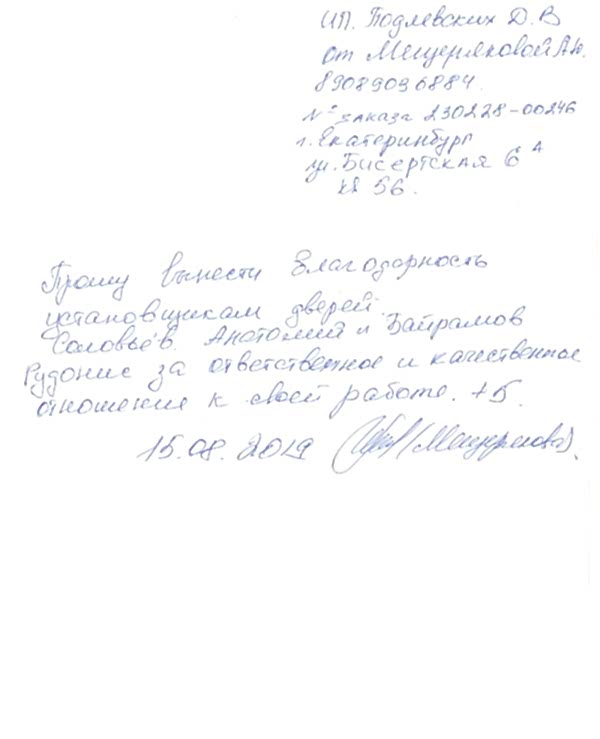 ИП. Подлевских Д.В
от Мещеряковой А.Ю.
89089096884.
№ заказа 230228-00246
г. Екатеринбург
ул. Бисертская 6 А
кв 56.
Прошу вынести благодарность
установщикам дверей.
Соловьёв. Анатолий и Байрамов
Рудонис за ответственное и качественное
отношение к своей работе. +5.
15.08.2019 (Мещерякова).